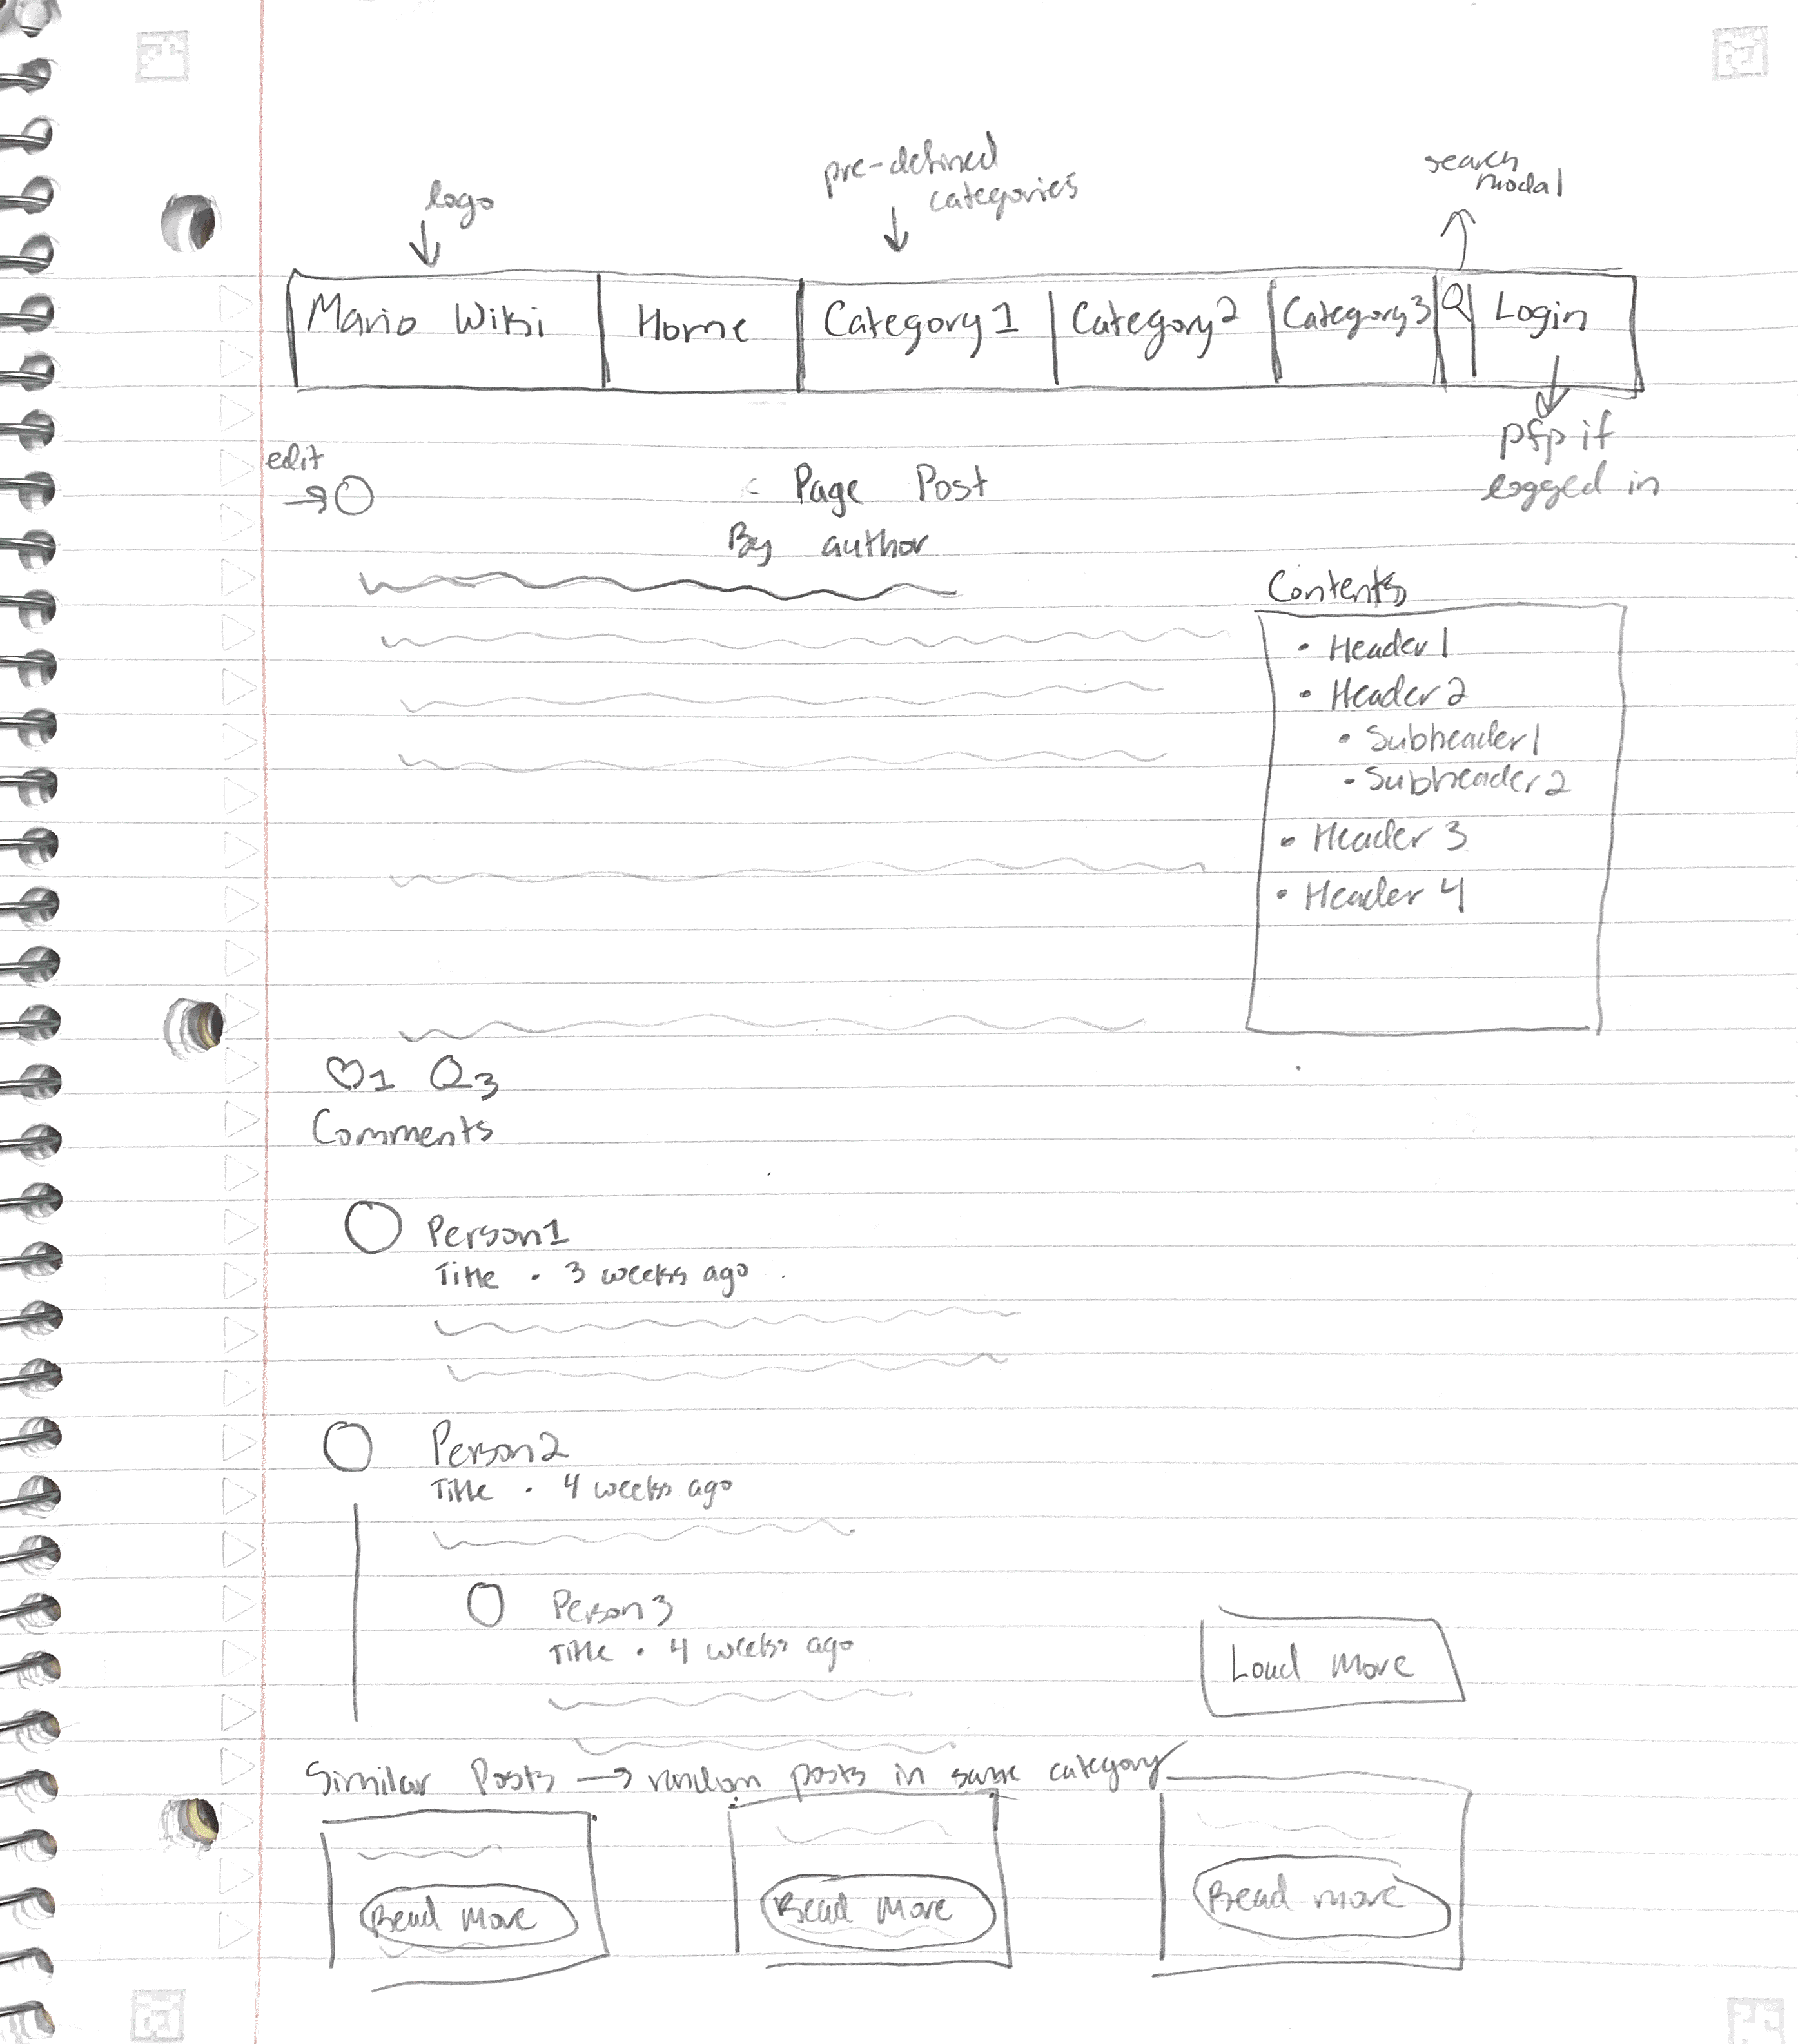 logo
pre-defined
categories
search
modal
Mario Wiki
Home
Category 1
Category 2
Category 3
Login
pfp if
logged in
edit
Page Post
By author
Contents
• Header 1
• Header 2
• Subheader 1
• Subheader 2
• Header 3
• Header 4
1 3
Comments
Person 1
Title • 3 weeks ago
Person 2
Title • 4 weeks ago
Person 3
Title • 4 weeks ago
Load More
Similar Posts → random posts in same category
Read More
Read More
Read more